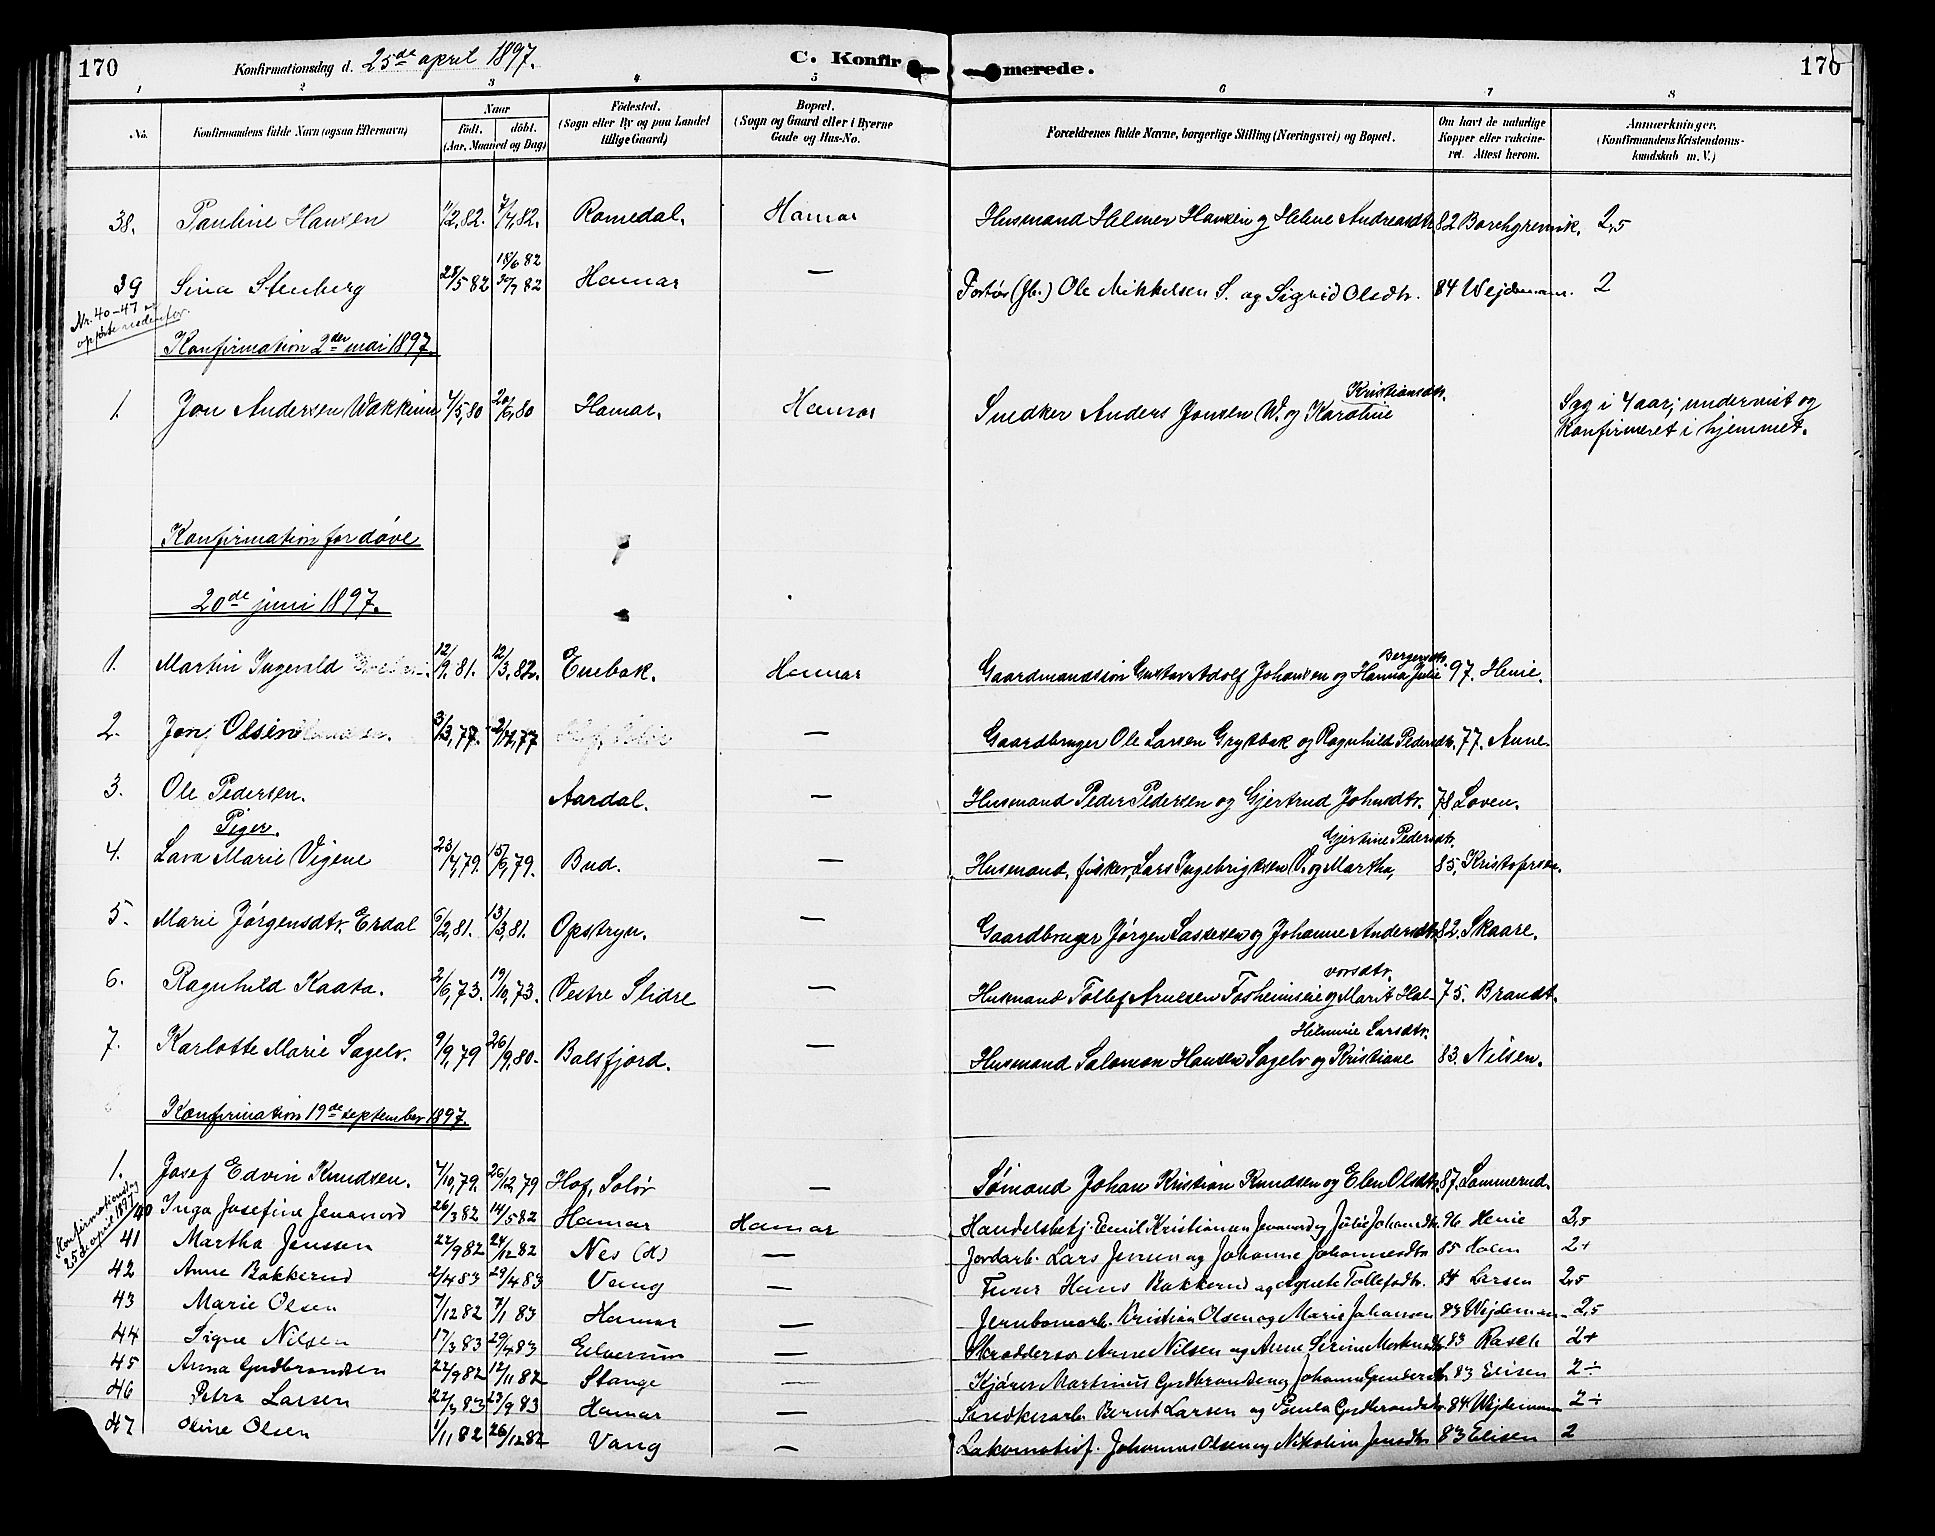 170 Konfirmationsdag d. 25de april 1897. C. Konfir merede. 170
1 2 3 4 5 6 7 8
No. Konfirmandens fulde Navn (ogsaa Efternavn) Naar født. døbt. (Aar, Maaned og Dag) Fødested. (Sogn eller By og paa Landet tillige Gaard) Bopæl. (Sogn og Gaard eller i Byerne Gade og Hus-No. Forældrenes fulde Navne, borgerlige Stilling (Næringsvei) og Bopæl. Om havt de naturlige Kopper eller vakcineret. Attest herom. Anmærkninger. (Konfirmandens Kristendomskundskab m. V.)
38. Pauline Hansen 1/2,82. Romedal. Hamar Husmand Helmer Hansen og Helene Andreasdtr. 82 Borchgrevink. 2,5
18/6 82
39 Sina Stenberg 28/5 82 30/7 82 Hamar — Ole Mikkelsen S. og Sigrid Olsdtr. 84 Wejdemann. 2
Nr. 40-47 er opførte nedenfor.
Konfirmation 2den mai 1897.
Kristiansdtr.
1. Jon Andersen Wakkinn 4/5,80 20/6,80 Hamar. Hamar Snedker Anders Jonsen W. og Karoline Syg i 4 aar; undervist og
konfirmeret i hjemmet.
Konfirmation for døve
20de juni 1897.
Bergersdtr.
1. Martin Ingevald 12/9,81. 12/3,82. Enebak. Hamar Gaardmandssøn Gustav Adolf Johansen og Hanna Julie 97. Henie.
2. Jon Olsen 3/3,77. — Gaardbruger Ole Larsen Grytbak og Ragnhild Pedersdtr. 77. Aune.
3. Ole Pedersen. Aardal. — Husmand Peder Pedersen og Gjertrud Johnsdtr. 78 Loven.
Piger.
Gjertine Pedersdtr.
4. Lava Marie Vigene 23/4,79. 15/6,79. Bud. — Husmand, fisker, Lars Ingebrigtsen V. og Martha, 85, Kristofersen.
5. Marie Jørgensdtr. Erdal 6/2,81. 13/3,81. Opstryn. — Gaardbruger Jørgen Lassesen og Johanne Andersdtr. 82. Skaare.
vorsdtr.
6. Ragnhild Kaata. 2/6,73. 19/10,73. Vestre Slidre — Husmand Tollef Arnesen Fosheimseie og Marit Hal- 75. Brandt.
Helmine Larsdtr.
7. Karlotte Marie Sagelv. 9/9,79 26/9,80. Balsfjord. — Husmand Salomon Hansen Sagelv og Kristiane 83. Nilsen.
Konfirmation 19de september 1897.
1. Josef Edvin Knudsen. 4/10,79. 26/12,79 Hof, Solør — Sømand Johan Kristian Knudsen og Elen Olsdtr. 87. Lammerud.
Konfirmationsdag 25de april 1897
40 Inga Josefine 26/3 82 14/5 82 Hamar Hamar Handelsbetj. Emil Kristiansen og Julie Johansdtr. 96 Henie 2,5
41 Martha Jenssen 22/9 82 24/12 82 Nes (H) — Jordarb. Lars Jensen og Johanne Johannesdtr. 85 Holm 2+
42 Anne Bakkerud 2/4 83 29/4 83 Vang — Hans Bakkerud og Agnete Tollefsdtr. 84 Larsen 2,5
43 Marie Olsen 7/12 82 7/1 83 Hamar — Jernbanearb. Kristian Olsen og Marie Johansen 83 Wejdemann 2,5
44 Signe Nilsen 17/3 83 29/4 83 Elverum — Skrædderso Arne Nilsen og Anne Serine 83 Rasch 2+
45 Anna Gudbrandsen 22/9 82 12/11 82 Stange — Kjører Martinus Gudbrandsen og Johanne Gundersdtr. 83 Elisen 2÷
46 Petra Larsen 22/7 83 23/9 83 Hamar — Snedkerarb. Bernt Larsen og Paula Gudbrandsdtr. 84 Wejdemann 2÷
47 Oline Olsen 1/11 82 26/12 82 Vang — Lokomotivf. Johannes Olsen og Nikoline Jensdtr. 83 Elisen 2